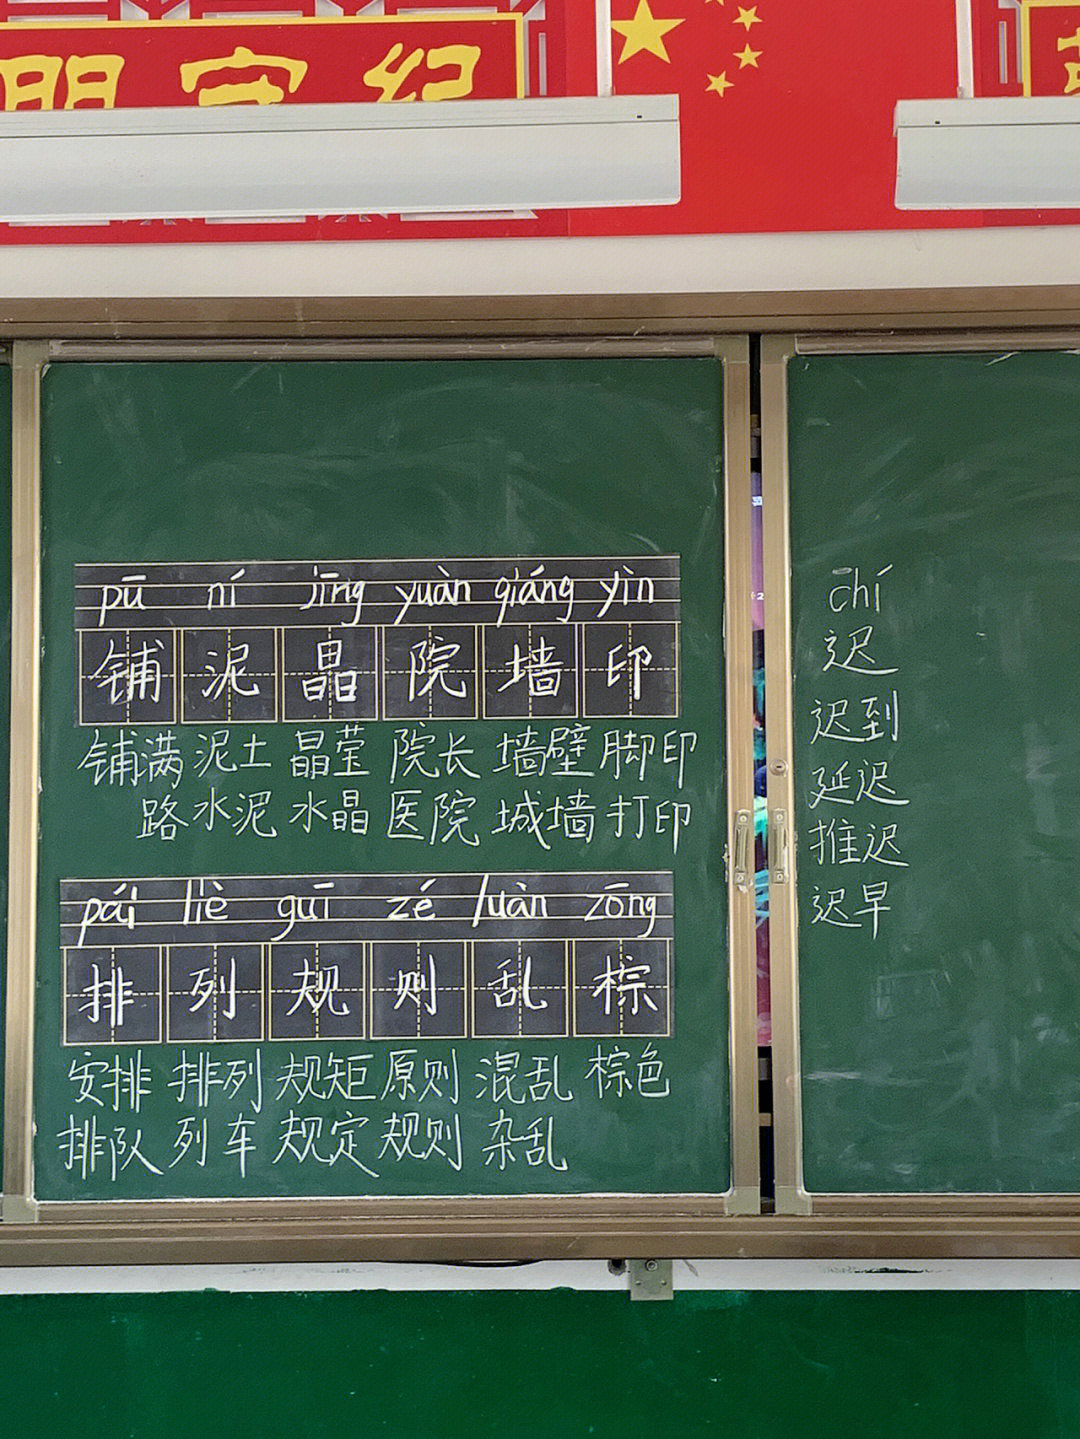 明守纪
pū ní jīng yuàn qiáng yìn
铺 泥 晶 院 墙 印
铺满 泥土 晶莹 院长 墙壁 脚印
路 水泥 水晶 医院 城墙 打印
pái liè guī zé luàn zōng
排 列 规 则 乱 棕
安排 排列 规矩 原则 混乱 棕色
排队 列车 规定 规则 杂乱
chí
迟
迟到
延迟
推迟
迟早